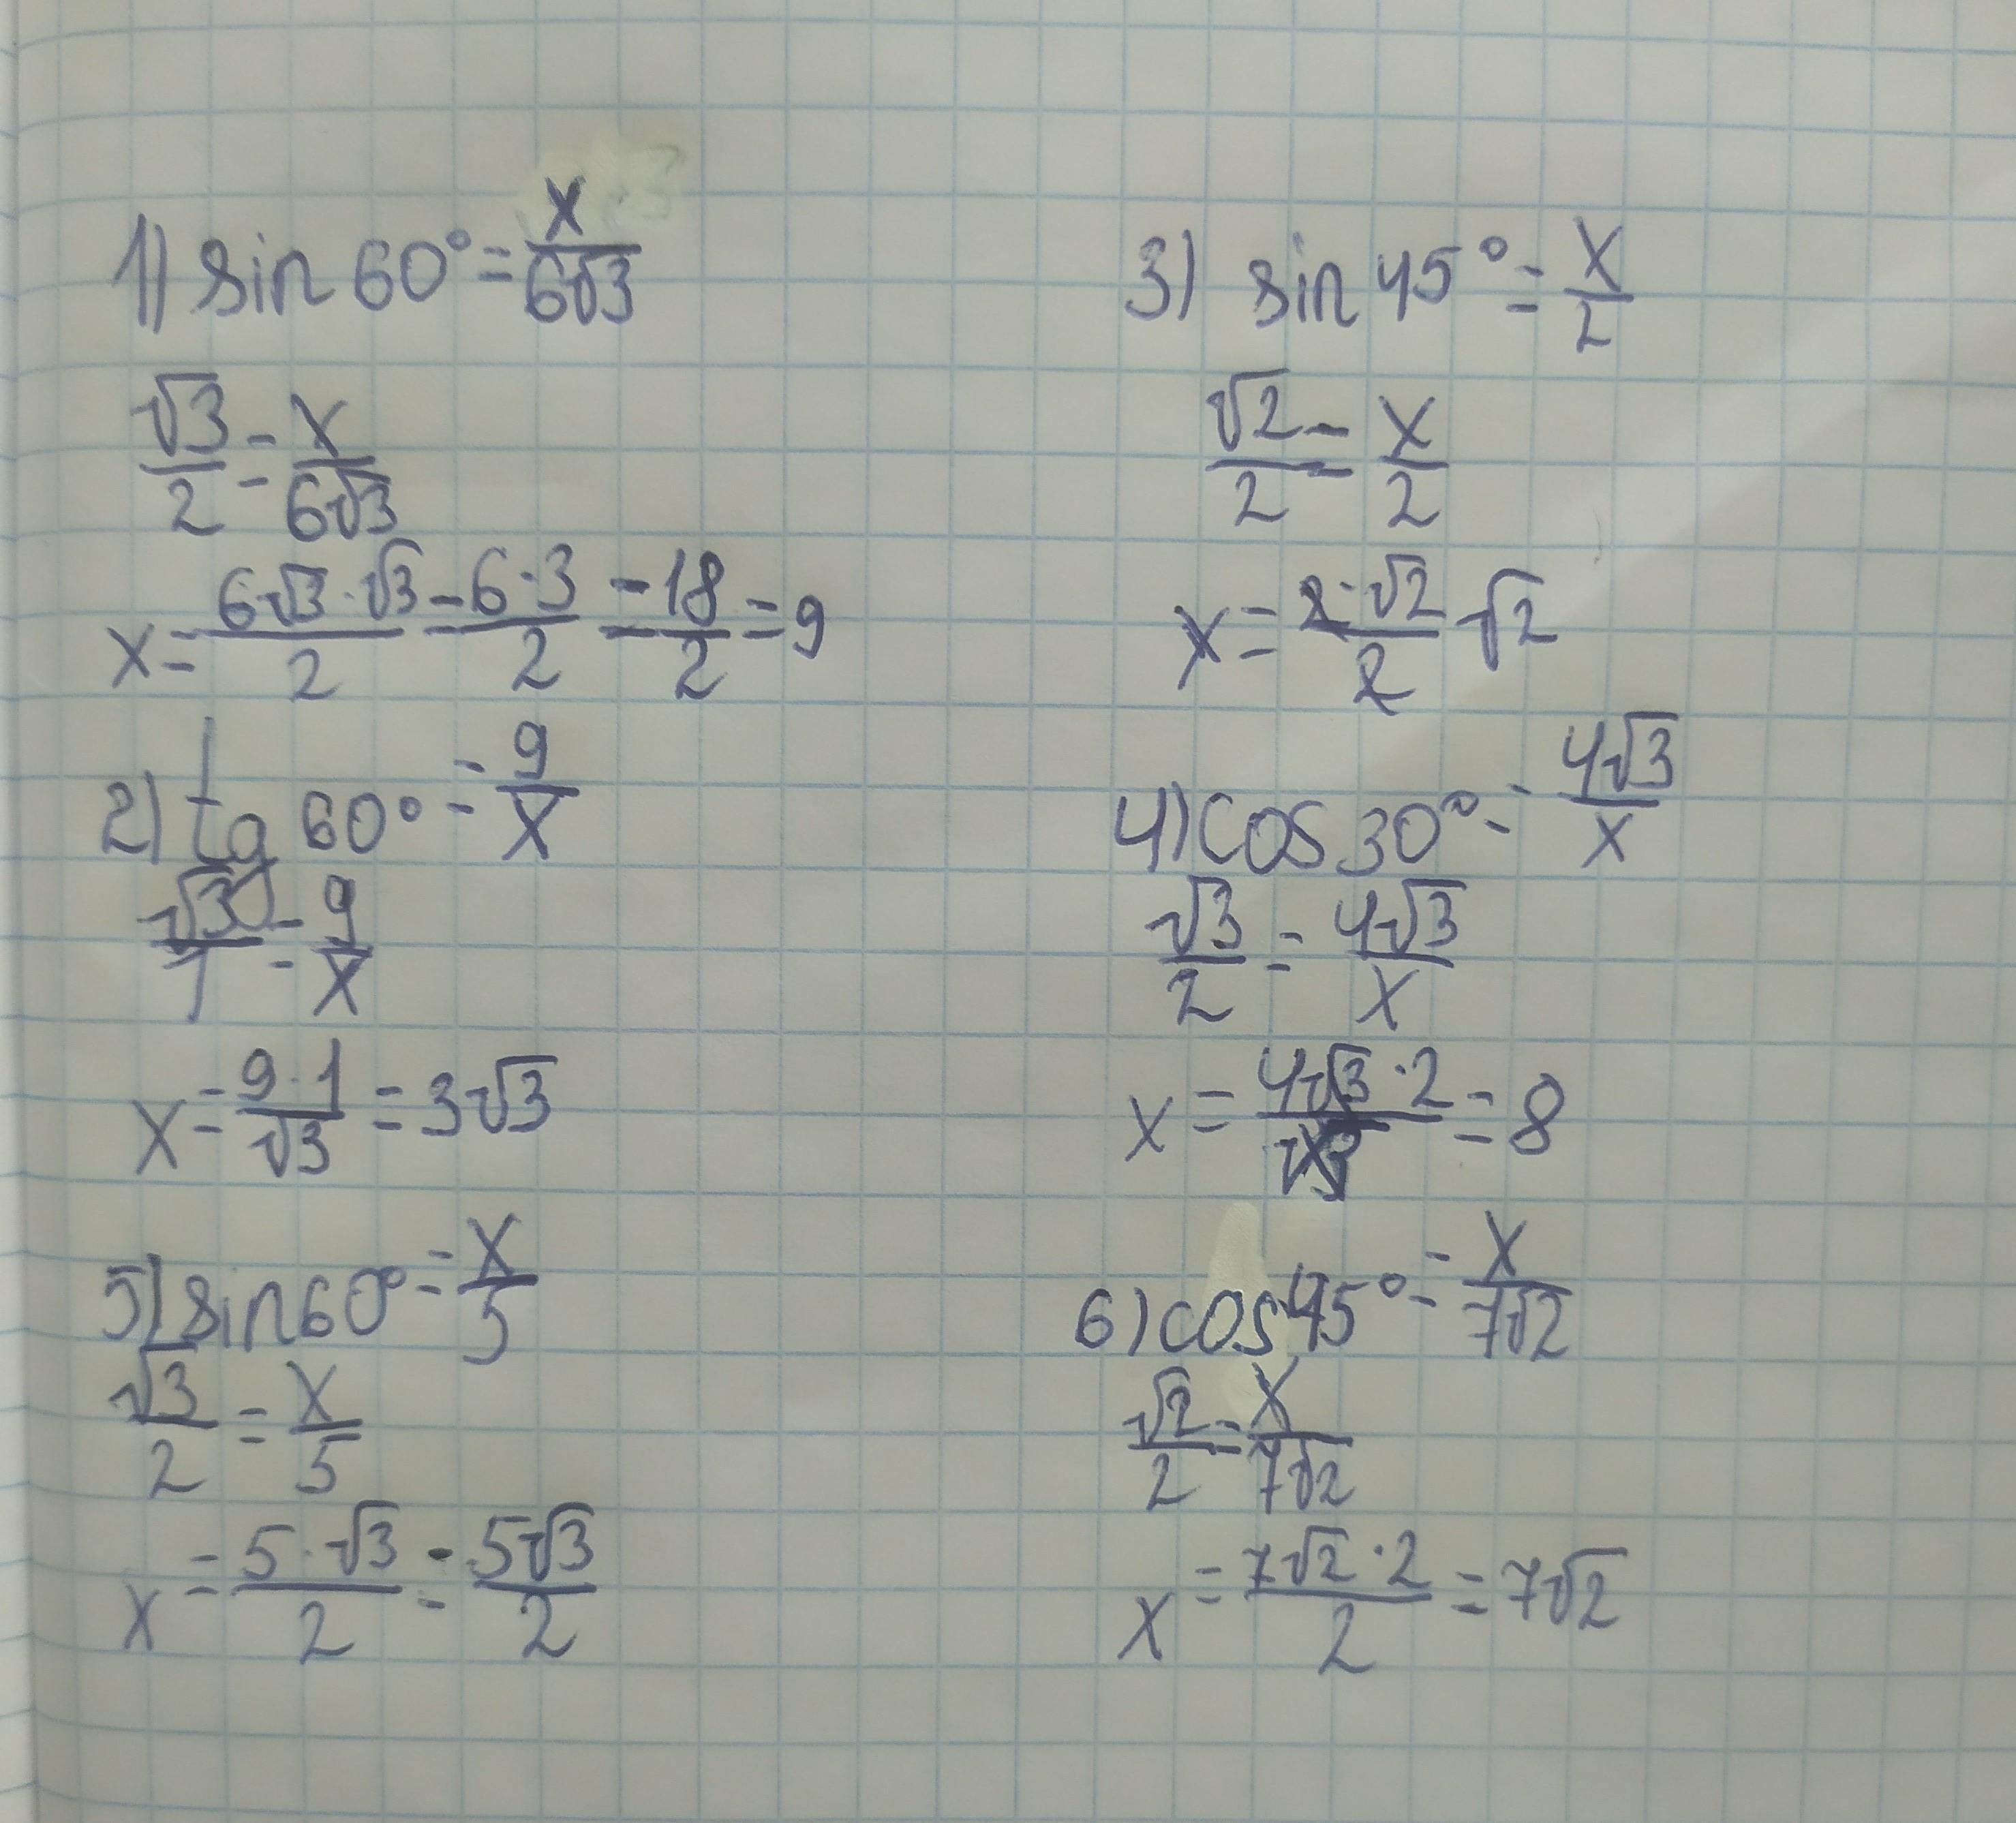 1) sin 60° = x/6√3
√3/2 = x/6√3
x = 6√3·√3/2 = 6·3/2 = 18/2 = 9
2) tg 60° = 9/x
√3/1 = 9/x
x = 9·1/√3 = 3√3
5) sin 60° = x/5
√3/2 = x/5
x = 5·√3/2 = 5√3/2
3) sin 45° = x/2
√2/2 = x/2
x = 2·√2/2 √2
4) cos 30° = 4√3/x
√3/2 = 4√3/x
x = 4√3·2/√3 = 8
6) cos 45° = x/7√2
√2/2 = x/7√2
x = 7√2·2/2 = 7√2